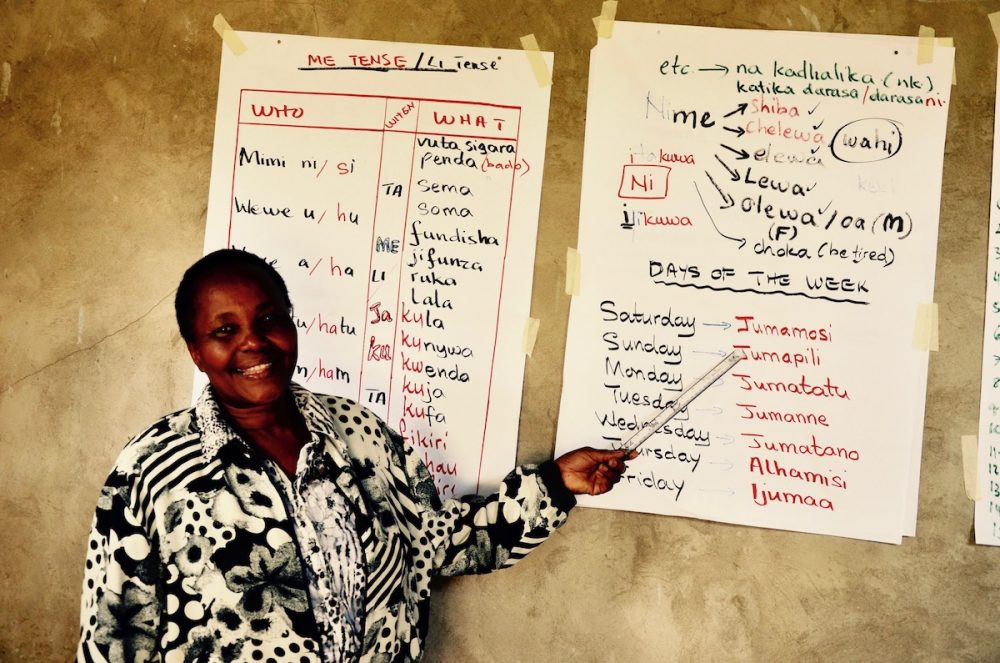 ME TENSE/LI Tense
WHO
WHEN
WHAT
Mimi ni/si
Wewe u/hu
a/ha
u/hatu
n/ham
TA
ME
LI
Ja
ku
TA
vuta sigara
penda (bado)
sema
soma
fundisha
jifunza
ruka
lala
kula
kunywa
kwenda
kuja
kufa
fikiri
etc → na kadhalika (nk)
katika darasa/darasani
Nime
shiba ✓
chelewa ✓
wahi
elewa ✓
Lewa ✓
Olewa ✓/oa (M)
(F)
choka (be tired)
itakuwa
Ni
ilikuwa
DAYS OF THE WEEK
Saturday → Jumamosi
Sunday → Jumapili
Monday → Jumatatu
Tuesday → Jumanne
Wednesday → Jumatano
Thursday → Alhamisi
Friday → Ijumaa